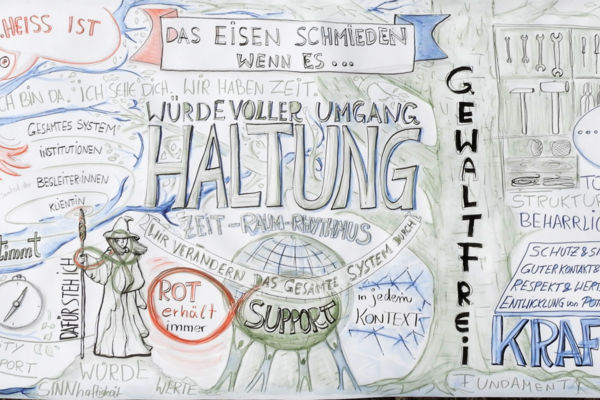 .HEISS IST
DAS EISEN SCHMIEDEN
WENN ES...
CH BIN DA. ICH SEHE DICH. WIR HABEN ZEIT.
WÜRDEVOLLER UMGANG
HALTUNG
ZEIT-RAUM-RHYTHMUS
GESAMTES SYSTEM
INSTITUTIONEN
BEGLEITER:INNEN
KLIENT:IN
timmt
DAFÜR STEH ICH
WIR VERÄNDERN DAS GESAMTE SYSTEM DURCH
ROT
erhält
immer
SUPPORT
in jedem
KONTEXT
WÜRDE
SINNhaftigkeit
WERTE
PORT
GEWALTFREI
TO
STRUKTUR
BEHARRLIC
SCHUTZ & SI
GUTER KONTAKT &
RESPEKT & WERT
ENTWICKLUNG von POT
KRAF
FUNDAMENT